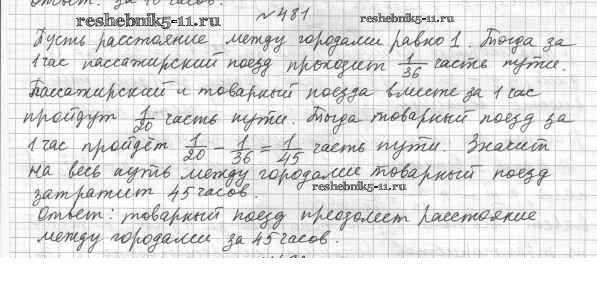 Ответ: за 40 часов.
reshebnik5-11.ru № 481 reshebnik5-11.ru
Пусть расстояние между городами равно 1. Тогда за
1 час пассажирский поезд проходит 1/36 часть пути.
Пассажирский и товарный поезда вместе за 1 час
пройдут 1/20 часть пути. Тогда товарный поезд за
1 час пройдёт 1/20 - 1/36 = 1/45 часть пути. Значит
на весь путь между городами товарный поезд
затратит 45 часов. reshebnik5-11.ru
Ответ: товарный поезд преодолеет расстояние
между городами за 45 часов.